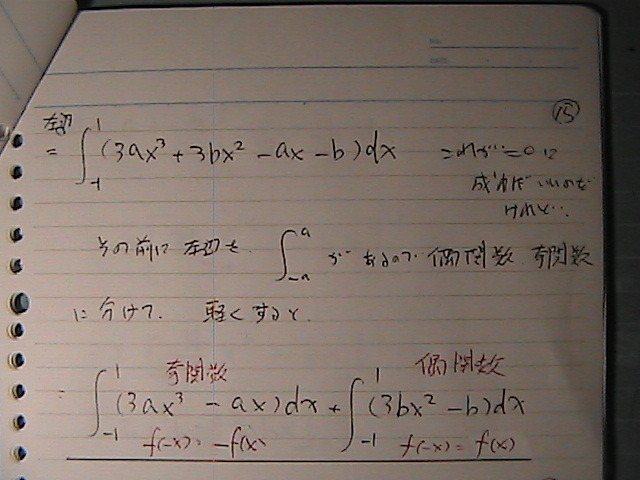 ⑮
左辺
= ∫_{-1}^{1} (3ax³ + 3bx² - ax - b)dx これが…=0に
成ればいいのだ
けれど…
その前に 左辺を ∫_{-a}^{a} があるので 偶関数 奇関数
に分けて、軽くすると、
奇関数 偶関数
= ∫_{-1}^{1} (3ax³ - ax)dx + ∫_{-1}^{1} (3bx² - b)dx
f(-x) = -f(x) f(-x) = f(x)